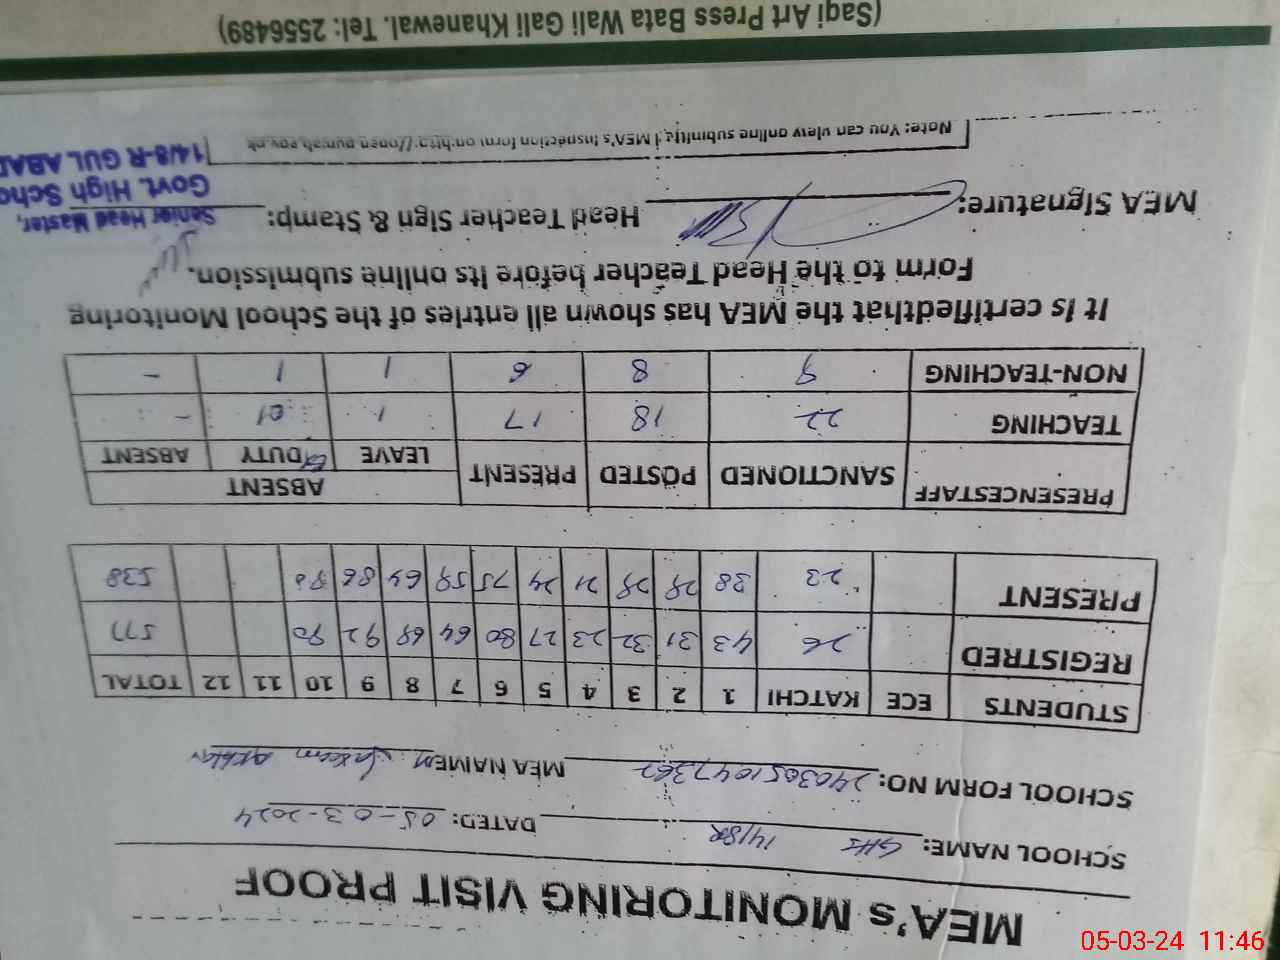 MEA's MONITORING VISIT PROOF
SCHOOL NAME: GHS 14/8R DATED: 05-03-2024
SCHOOL FORM NO: MEA NAME
STUDENTS ECE KATCHI 1 2 3 4 5 6 7 8 9 10 11 12 TOTAL
REGISTRED 26 43 31 32 23 27 80 64 69 92 90 577
PRESENT 23 38 28 28 21 24 75 59 64 88 538
PRESENCESTAFF SANCTIONED POSTED PRESENT ABSENT
LEAVE DUTY ABSENT
TEACHING 22 18 17 1 01 -
NON-TEACHING 9 8 6 1 1 -
It is certifiedthat the MEA has shown all entries of the School Monitoring
Form to the Head Teacher before its online submission.
MEA Signature: Head Teacher Sign & Stamp:
Senior Head Master,
Govt. High Scho
14/8-R GUL ABAD
Note: You can view online submitted MEA's inspection form on:http://open.punjab.gov.pk
(Saqi Art Press Bata Wali Gali Khanewal. Tel: 2556489)
05-03-24 11:46